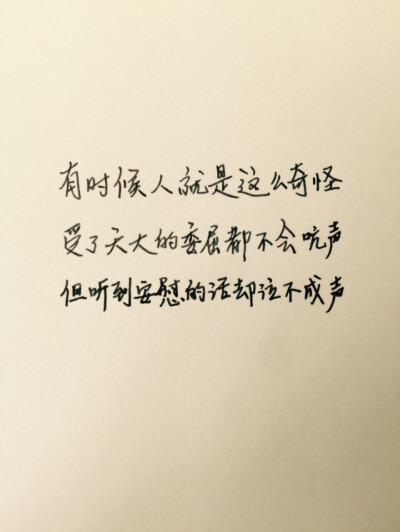 有时候人就是这么奇怪
受了天大的委屈都不会吭声
但听到安慰的话却泣不成声